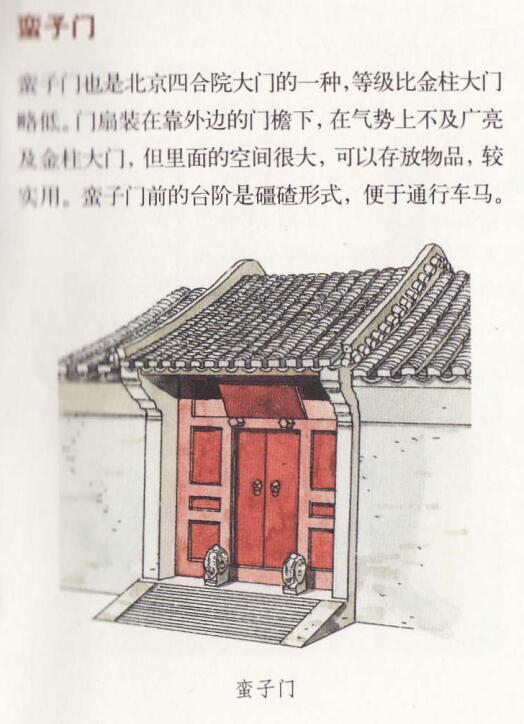 蛮子门
蛮子门也是北京四合院大门的一种，等级比金柱大门
略低。门扇装在靠外边的门檐下，在气势上不及广亮
及金柱大门，但里面的空间很大，可以存放物品，较
实用。蛮子门前的台阶是礓䃰形式，便于通行车马。
蛮子门